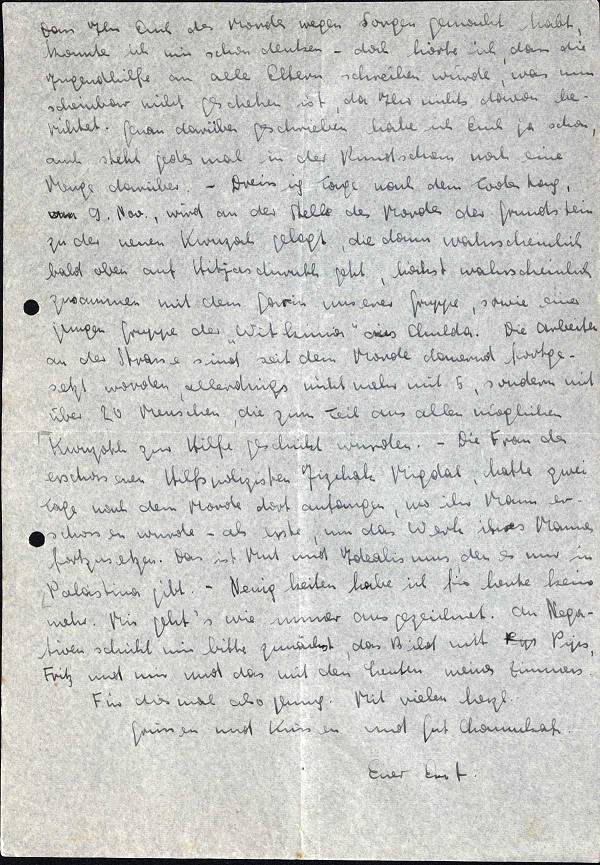 Dass Ihr Euch des Mordes wegen Sorgen gemacht habt,
konnte ich mir schon denken - doch hörte ich, dass die
Jugendhilfe an alle Eltern schreiben würde, was nun
scheinbar nicht geschehen ist, da Ihr nichts davon be-
richtet. Genau darüber geschrieben habe ich Euch ja schon,
auch steht jedesmal in der Rundschau noch eine
Menge darüber. - Dreissig Tage nach dem Todestag,
am 9. Nov., wird an der Stelle des Mordes der Grundstein
zu der neuen Kwuzah gelegt, die dann wahrscheinlich
bald oben auf geht, höchst wahrscheinlich
zusammen mit dem Garin unserer Gruppe, sowie einer
jungen Gruppe der „Witkinia" aus Chulda. Die Arbeiten
an der Strasse sind seit dem Morde dauernd fortge-
setzt worden, allerdings nicht mehr mit 5, sondern mit
über 20 Menschen, die zum Teil aus allen möglichen
Kwuzoth zur Hilfe geschickt wurden. - Die Frau des
erschossenen Hilfspolizisten Jizchak Migdal, hatte zwei
Tage nach dem Morde dort anfangen, wo ihr Mann er-
schossen wurde - als erste, um das Werk ihres Mannes
fortzusetzen. Das ist Mut und Idealismus den es nur in
Palästina gibt. - Neuigkeiten habe ich für heute keine
mehr. Mir geht's wie immer ausgezeichnet. An Nega-
tiven schickt mir bitte zunächst, das Bild mit Pips,
Fritz und mir und das mit den Leuten meines Zimmers.
Für diesmal also genug. Mit vielen herzl.
Grüssen und Küssen und gut Chanukah.
Euer Ernst.